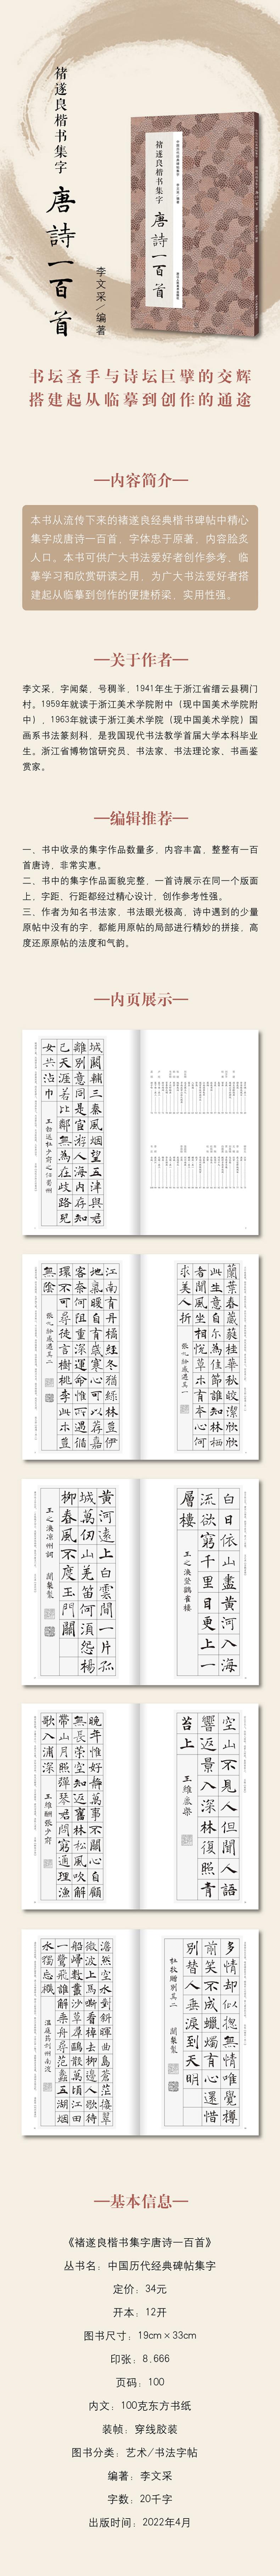 褚遂良楷书集字
唐詩一百首
李文采/编著
褚遂良楷书集字
唐詩一百首
书坛圣手与诗坛巨擘的交辉
搭建起从临摹到创作的通途
内容简介
本书从流传下来的褚遂良经典楷书碑帖中精心
集字成唐诗一百首，字体忠于原著，内容脍炙
人口。本书可供广大书法爱好者创作参考、临
摹学习和欣赏研读之用，为广大书法爱好者搭
建起从临摹到创作的便捷桥梁，实用性强。
关于作者
李文采，字闻粲，号稠峯，1941年生于浙江省缙云县稠门
村。1959年就读于浙江美术学院附中（现中国美术学院附
中），1963年就读于浙江美术学院（现中国美术学院）国
画系书法篆刻科，是我国现代书法教学首届大学本科毕业
生。浙江省博物馆研究员、书法家、书法理论家、书画鉴
赏家。
编辑推荐
一、书中收录的集字作品数量多，内容丰富，整整有一百
首唐诗，非常实惠。
二、书中的集字作品面貌完整，一首诗展示在同一个版面
上，字距、行距都经过精心设计，创作参考性强。
三、作者为知名书法家，书法眼光极高，诗中遇到的少量
原帖中没有的字，都能用原帖的局部进行精妙的拼接，高
度还原原帖的法度和气韵。
内页展示
城闕輔三秦風烟望五津與君
離別意同是宦游人海内存知
己天涯若比鄰無為在歧路兒
女共沾巾
王勃送杜少府之任蜀州
蘭葉春葳蕤桂華秋皎潔欣欣
此生意自尔為佳節誰知林栖
者聞風坐相悦草木有本心何
求美人折
張九齡感遇其一
江南有丹橘經冬猶綠林豈伊
地氣暖自有歲寒心可以荐嘉
客奈何阻重深運命惟所遇循
環不可尋徒言樹桃李此木豈
無陰
張九齡感遇其二
白日依山盡黃河入海
流欲窮千里目更上一
層樓
王之渙登鸛雀樓
黃河遠上白雲間一片孤
城萬仞山羌笛何須怨楊
柳春風不度玉門關
王之渙凉州詞
空山不見人但聞人語
響返景入深林復照青
苔上
王維鹿柴
晚年惟好靜萬事不關心自顧
無長策空知返舊林松風吹解
帶山月照彈琴君問窮通理漁
歌入浦深
王維酬張少府
多情却似揔無情唯覺樽
前笑不成蠟燭有心還惜
別替人垂淚到天明
杜牧贈別其二
澹然空水對斜暉曲島蒼茫接翠
微波上馬嘶看棹去柳邊人歇待
船歸數叢沙草群鷗散萬頃江田
一鷺飛誰解乘舟尋范蠡五湖烟
水獨忘機
温庭筠利州南渡
基本信息
《褚遂良楷书集字唐诗一百首》
丛书名：中国历代经典碑帖集字
定价：34元
开本：12开
图书尺寸：19cm×33cm
印张：8.666
页码：100
内文：100克东方书纸
装帧：穿线胶装
图书分类：艺术/书法字帖
编著：李文采
字数：20千字
出版时间：2022年4月